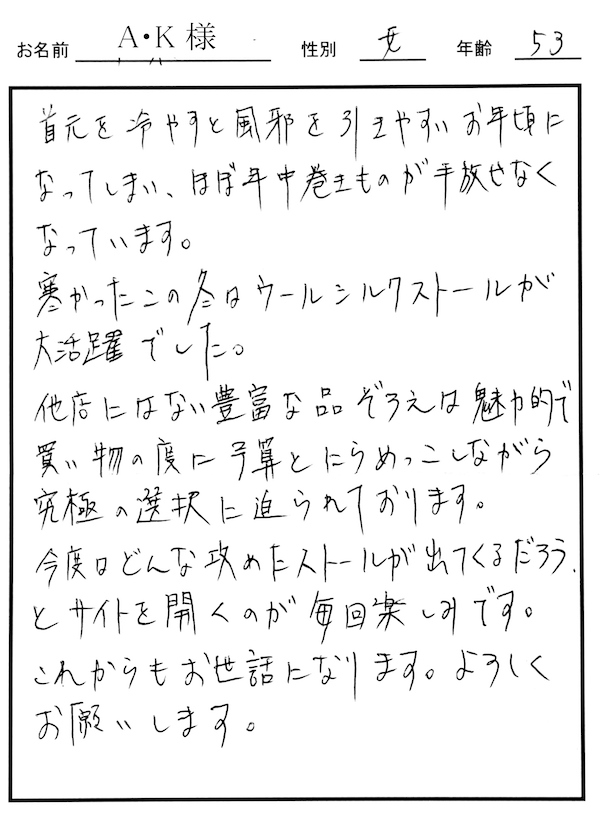 お名前 A・K様 性別 女 年齢 53
首元を冷やすと風邪を引きやすいお年頃に
なってしまい、ほぼ年中巻きものが手放せなく
なっています。
寒かったこの冬はウールシルクストールが
大活躍でした。
他店にはない豊富な品ぞろえは魅力的で
買い物の度に予算とにらめっこしながら
究極の選択に迫られております。
今度はどんな攻めたストールが出てくるだろう、
とサイトを開くのが毎回楽しみです。
これからもお世話になります。よろしく
お願いします。